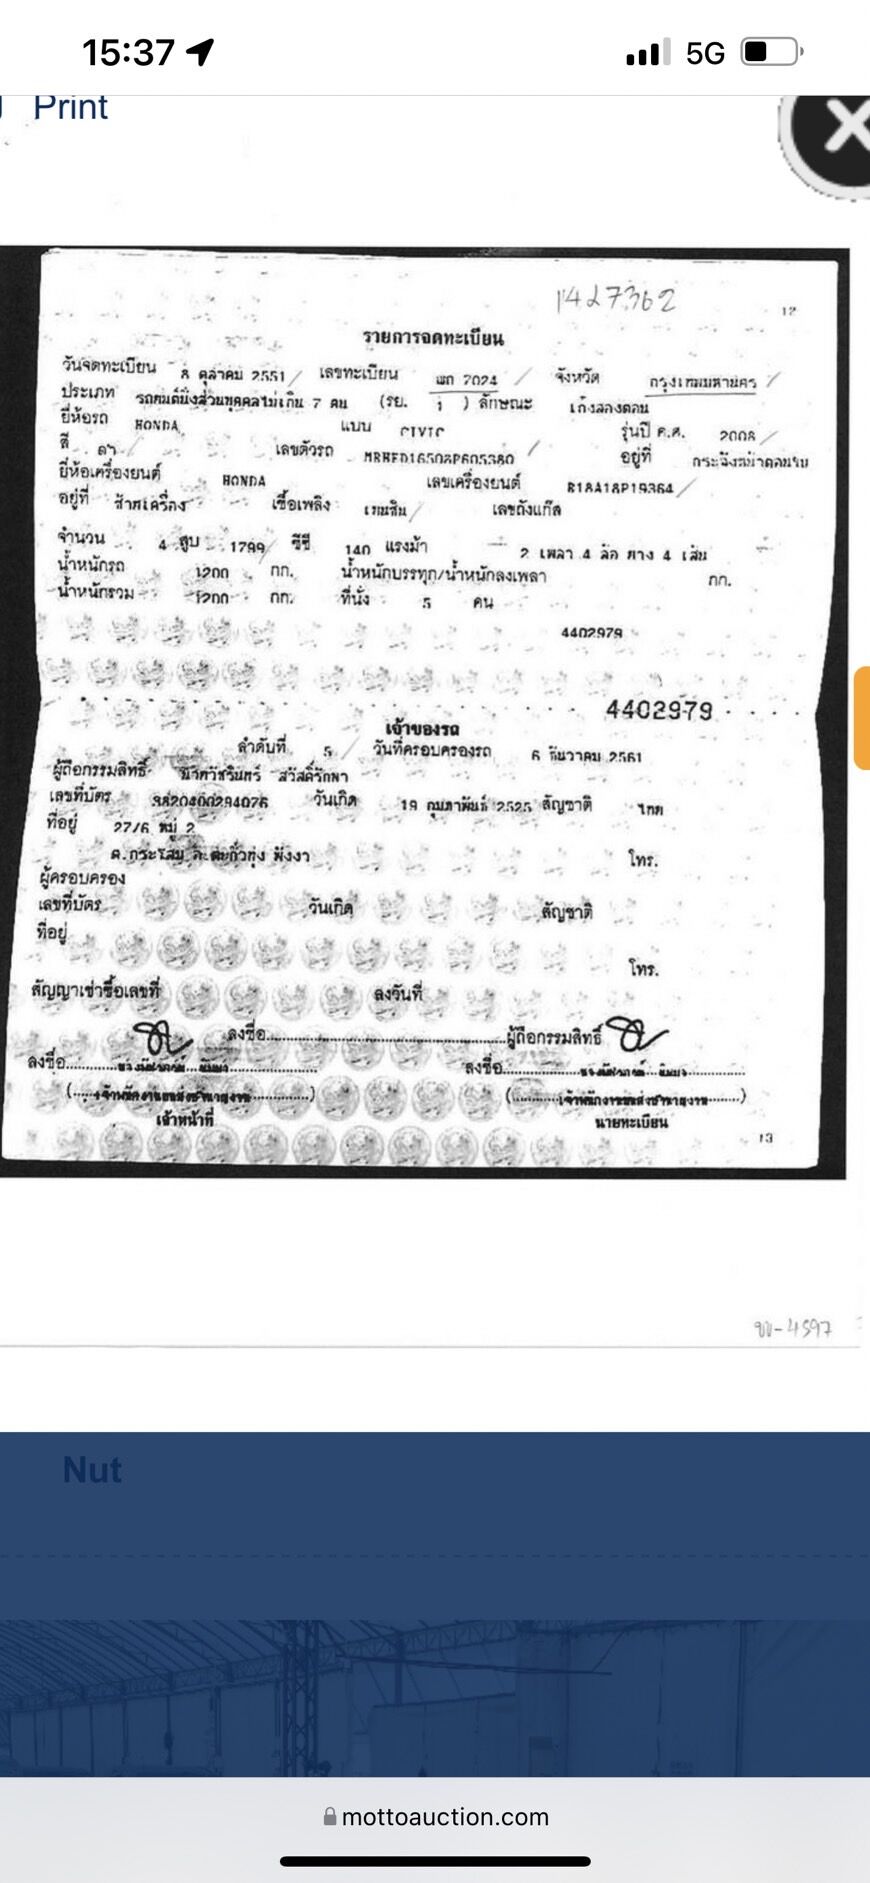 15:37 5G
Print
1427362
12
รายการจดทะเบียน
วันจดทะเบียน 8 ตุลาคม 2551 เลขทะเบียน 7024 จังหวัด กรุงเทพมหานคร
ประเภท รถยนต์นั่งส่วนบุคคลไม่เกิน 7 คน (รย. 1 ) ลักษณะ เก๋งสองตอน
ยี่ห้อรถ HONDA แบบ CIVIC รุ่นปี ค.ศ. 2008
สี ดำ เลขตัวรถ อยู่ที่
ยี่ห้อเครื่องยนต์ HONDA เลขเครื่องยนต์ R18A18P19364
อยู่ที่ ซ้ายเครื่อง เชื้อเพลิง เบนซิน เลขถังแก๊ส
จำนวน 4 สูบ 1799 ซีซี 140 แรงม้า 2 เพลา 4 ล้อ ยาง 4 เส้น
น้ำหนักรถ 1200 กก. น้ำหนักบรรทุก/น้ำหนักลงเพลา กก.
น้ำหนักรวม 1200 กก. ที่นั่ง 5 คน
4402979
4402979
เจ้าของรถ
ลำดับที่ 5 วันที่ครอบครองรถ 6 ธันวาคม 2561
ผู้ถือกรรมสิทธิ์ สวัสดิ์รักษา
เลขที่บัตร 3820400294076 วันเกิด 19 กุมภาพันธ์ 2525 สัญชาติ ไทย
ที่อยู่ 27/6 หมู่ 2
ต.กระโสม อ.ตะกั่วทุ่ง พังงา โทร.
ผู้ครอบครอง
เลขที่บัตร วันเกิด สัญชาติ
ที่อยู่
โทร.
สัญญาเช่าซื้อเลขที่ ลงวันที่
ลงชื่อ ผู้ถือกรรมสิทธิ์
ลงชื่อ ลงชื่อ
เจ้าหน้าที่ นายทะเบียน
13
Nut
mottoauction.com